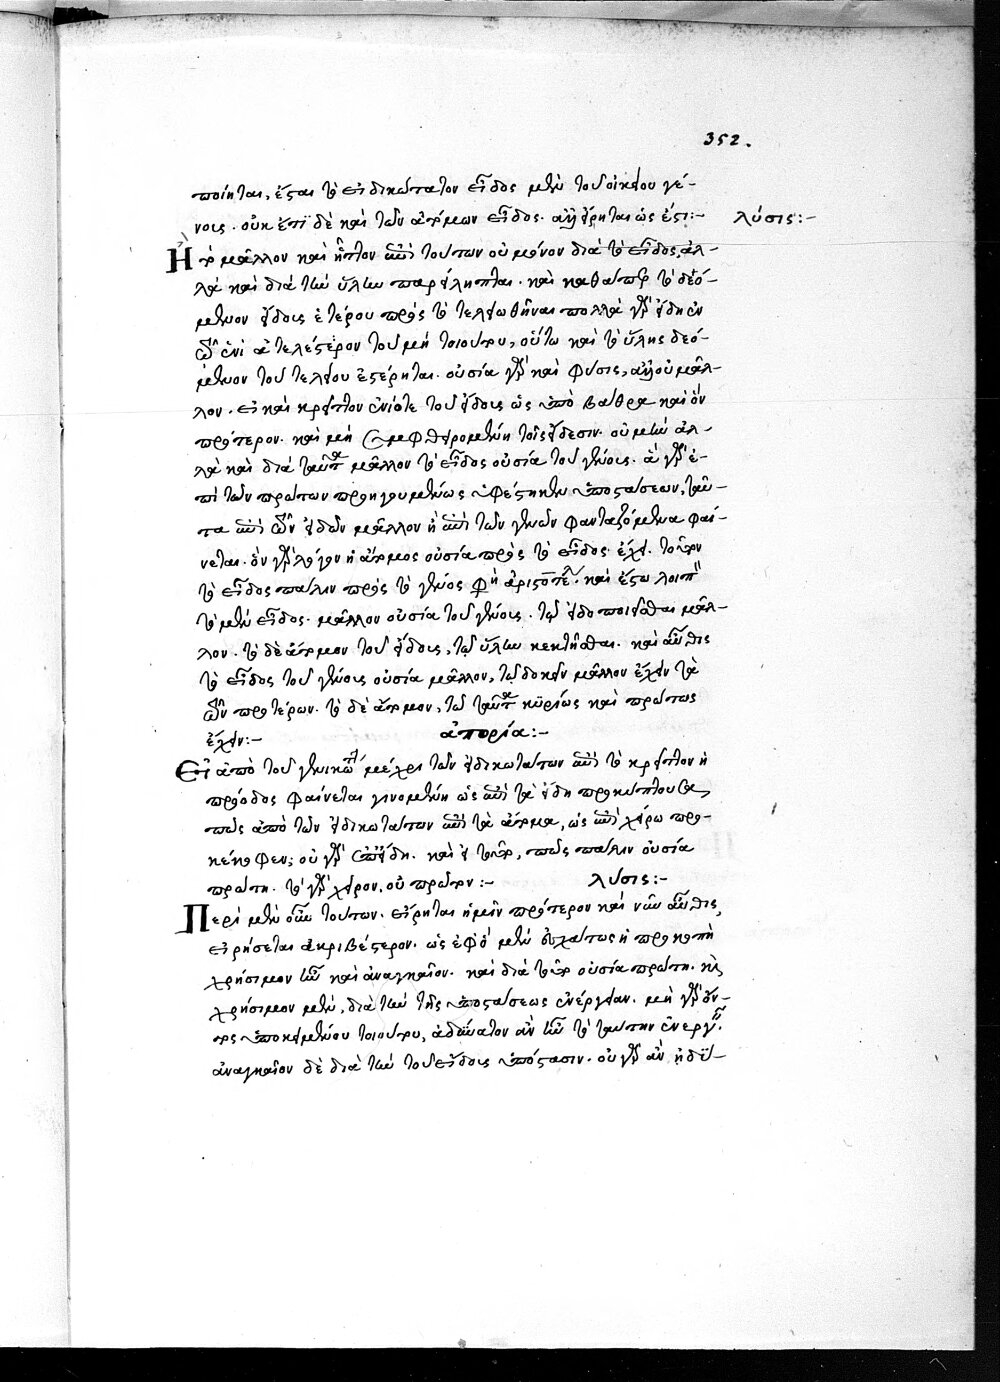 352.
ποίηται, ἔσται τὸ εἰδικώτατον εἶδος μετὰ τοῦ οἰκείου γέ-
νους. οὐκ ἔτι δὲ καὶ τῶν ἀτόμων εἶδος. ἀλλ' εἴρηται ὡς ἔστι:- λύσις:-
Ἢ τὸ μᾶλλον καὶ ἧττον ἐπὶ τούτων οὐ μόνον διὰ τὸ εἶδος, ἀλ-
λὰ καὶ διὰ τὴν ὕλην παρείληπται. καὶ καθάπερ τὸ δεό-
μενον εἴδους ἑτέρου πρὸς τὸ τελειωθῆναι πολλὰ γὰρ εἴδη ἐν
τῷ ἑνὶ ἀτελέστερον τοῦ μὴ τοιούτου, οὕτω καὶ τὸ ὕλης δεό-
μενον τοῦ τελείου ἐστέρηται. οὐσία γὰρ καὶ φύσις, ἀλλ' οὐ μᾶλ-
λον. εἰ καὶ κρεῖττον ἐνίοτε τοῦ εἴδους ὡς ὑπὸ βάθρα καὶ ὂν
πρότερον. καὶ μὴ συμφθειρομένη τοῖς εἴδεσιν. οὐ μὴν ἀλ-
λὰ καὶ διὰ ταῦτα μᾶλλον τὸ εἶδος οὐσία τοῦ γένους. ἃ γὰρ ἐ-
πὶ τῶν πρώτων προηγουμένως ὑφέστηκεν ὑποστάσεων, ταῦ-
τα ἐπὶ τῶν εἰδῶν μᾶλλον ἢ ἐπὶ τῶν γενῶν φανταζόμενα φαί-
νεται. ὃν γὰρ λόγον ἡ ἄτομος οὐσία πρὸς τὸ εἶδος ἔχει. τοῦτον
τὸ εἶδος πάλιν πρὸς τὸ γένος φησὶ ἀριστοτέλης. καὶ ἔστω λοιπὸν
τὸ μὲν εἶδος. μᾶλλον οὐσία τοῦ γένους. τῷ εἰδοποιεῖσθαι μᾶλ-
λον. τὸ δὲ ἄτομον τοῦ εἴδους, τῷ ὕλην κεκτῆσθαι. καὶ αὖθις
τὸ εἶδος τοῦ γένους οὐσία μᾶλλον, τῷ δοκεῖν μᾶλλον ἔχειν τὰ
τῶν προτέρων. τὸ δὲ ἄτομον, τῷ ταῦτα κυρίως καὶ πρώτως
ἔχειν:- ἀπορία:-
Εἰ ἀπὸ τοῦ γενικωτάτου μέχρι τῶν εἰδικωτάτων ἐπὶ τὸ κρεῖττον ἡ
πρόοδος φαίνεται γινομένη ὡς ἐπὶ τὰ εἴδη προκύπτουσα,
πῶς ἀπὸ τῶν εἰδικωτάτων ἐπὶ τὰ ἄτομα, ὡς ἐπὶ χείρω προ-
κέκοφεν; οὐ γὰρ εἴδη. καὶ εἰ τοῦτο, πῶς πάλιν οὐσία
πρώτη. τὸ γὰρ χεῖρον, οὐ πρῶτον:- λύσις:-
Περὶ μὲν οὖν τούτων. εἴρηται ἡμῖν πρότερον καὶ νῦν αὖθις,
εἰρήσεται ἀκριβέστερον. ὡς ἐφ' ὃ μὲν ἐσχάτως ἡ προκοπὴ
χρήσιμον ἦν καὶ ἀναγκαῖον. καὶ διὰ τοῦτο οὐσία πρώτη. καὶ
χρήσιμον μὲν, διὰ τὴν τῆς ὑποστάσεως ἐνέργειαν. μὴ γὰρ ὄν-
τος ὑποκειμένου τοιούτου, ἀδύνατον ἂν ἦν τὸ ταύτην ἐνεργεῖν.
ἀναγκαῖον δὲ διὰ τὴν τοῦ εἴδους ὑπόστασιν. οὐ γὰρ ἂν ἠδύ-